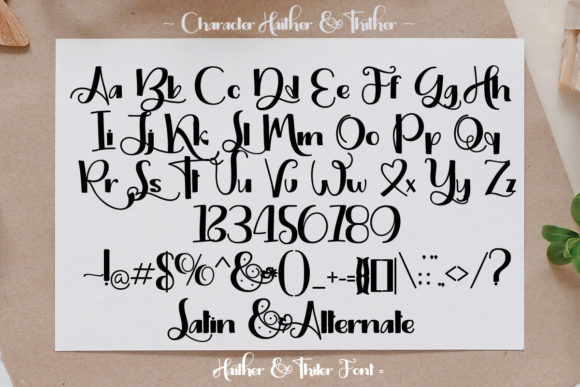 ~ Character Haither & Thither ~
Aa Bb Cc Dd Ee Ff Gg Hh
Ii Jj Kk Ll Mm Oo Pp Qq
Rr Ss Tt Uu Vv Ww Xx Yy Zz
1234567890
~!@#$%^&*()_+-={}[]|\:;"'.,<>/?
Latin & Alternate
Haither & Thiter Font =